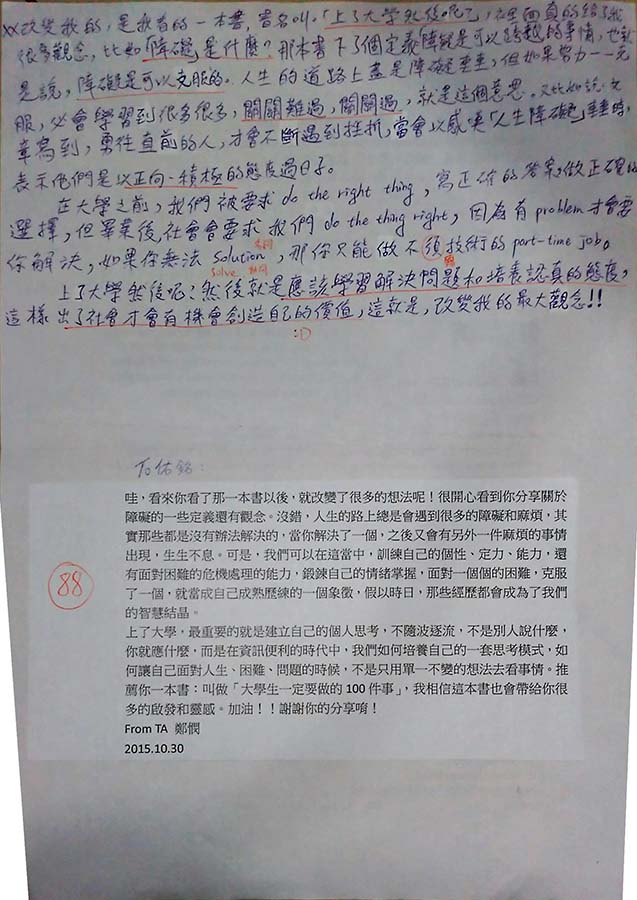 xx改變我的,是我看的一本書,書名叫。「上了大學然後呢?」,裡面真的給了我
很多觀念,比如「障礙」是什麼?那本書下了個定義障礙是可以跨越的事情,也就
是說,障礙是可以克服的。人生的道路上盡是障礙重重,但如果努力一一克
服,必會學習到很多很多,關關難過,關關過,就是這個意思。又比如說文
章寫到,勇往直前的人,才會不斷遇到挫折,當會以感嘆「人生障礙」重重時,
表示他們是以正向、積極的態度過日子。
在大學之前,我們被要求do the right thing,寫正確的答案,做正確的
選擇,但畢業後,社會會要求我們do the thing right,因為有problem才會要
名詞
你解決,如果你無法solution,那你只能做不須技術的part-time job。
solve 動詞
上了大學然後呢?然後就是應該學習解決問題和培養認真的態度,
這樣出了社會才會有機會創造自己的價值,這就是,改變我的最大觀念!!
:D
石佑銘:
哇,看來你看了那一本書以後,就改變了很多的想法呢!很開心看到你分享關於
障礙的一些定義還有觀念。沒錯,人生的路上總是會遇到很多的障礙和麻煩,其
實那些都是沒有辦法解決的,當你解決了一個,之後又會有另外一件麻煩的事情
出現,生生不息。可是,我們可以在這當中,訓練自己的個性、定力、能力,還
有面對困難的危機處理的能力,鍛鍊自己的情緒掌握,面對一個個的困難,克服
了一個,就當成自己成熟歷練的一個象徵,假以時日,那些經歷都會成為了我們
的智慧結晶。
88
上了大學,最重要的就是建立自己的個人思考,不隨波逐流,不是別人說什麼,
你就應什麼,而是在資訊便利的時代中,我們如何培養自己的一套思考模式,如
何讓自己面對人生、困難、問題的時候,不是只用單一不變的想法去看事情。推
薦你一本書:叫做「大學生一定要做的 100 件事」,我相信這本書也會帶給你很
多的啟發和靈感。加油!!謝謝你的分享唷!
From TA 鄭憪
2015.10.30